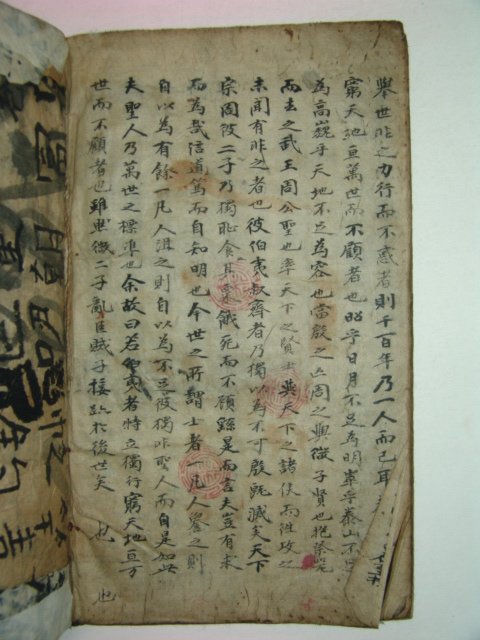 舉世非之力行而不惑者則千百年乃一人而已耳
窮天地亘萬世而不顧者也昭乎日月不足為明崒乎泰山不足
為高巍乎天地不足為容也當殷之亡周之興微子賢也抱祭器
而去之武王周公聖也率天下之賢士與天下之諸侯而往攻之
未聞有非之者也彼伯夷叔齊者乃獨以為不可殷既滅矣天下
宗周彼二子乃獨恥食其粟餓死而不顧繇是而言夫豈有求
而為哉信道篤而自知明也今世之所謂士者一凡人譽之則
自以為有餘一凡人沮之則自以為不足彼獨非聖人而自是如此
夫聖人乃萬世之標準也余故曰若伯夷者特立獨行窮天地亘万
世而不顧者也雖然微二子亂臣賊子接跡於後世矣 也
也